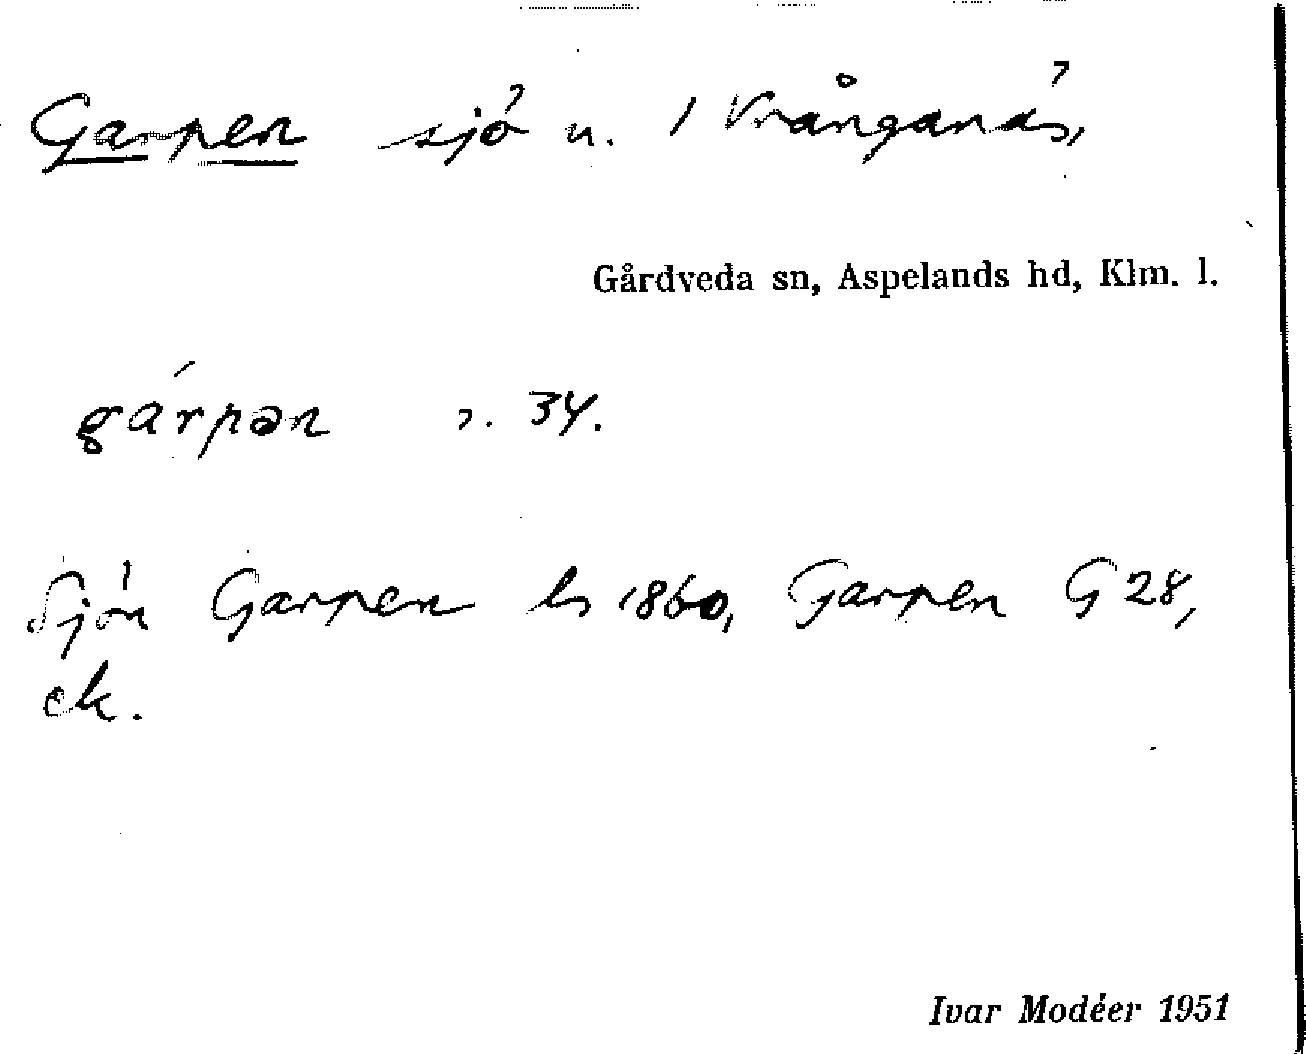 Garpen sjö n. / Vrånganäs,
Gårdveda sn, Aspelands hd, Klm. l.
gárpən s. 34.
Sjön Garpen ls 1860, Garpen G 28,
ek.
Ivar Modéer 1951